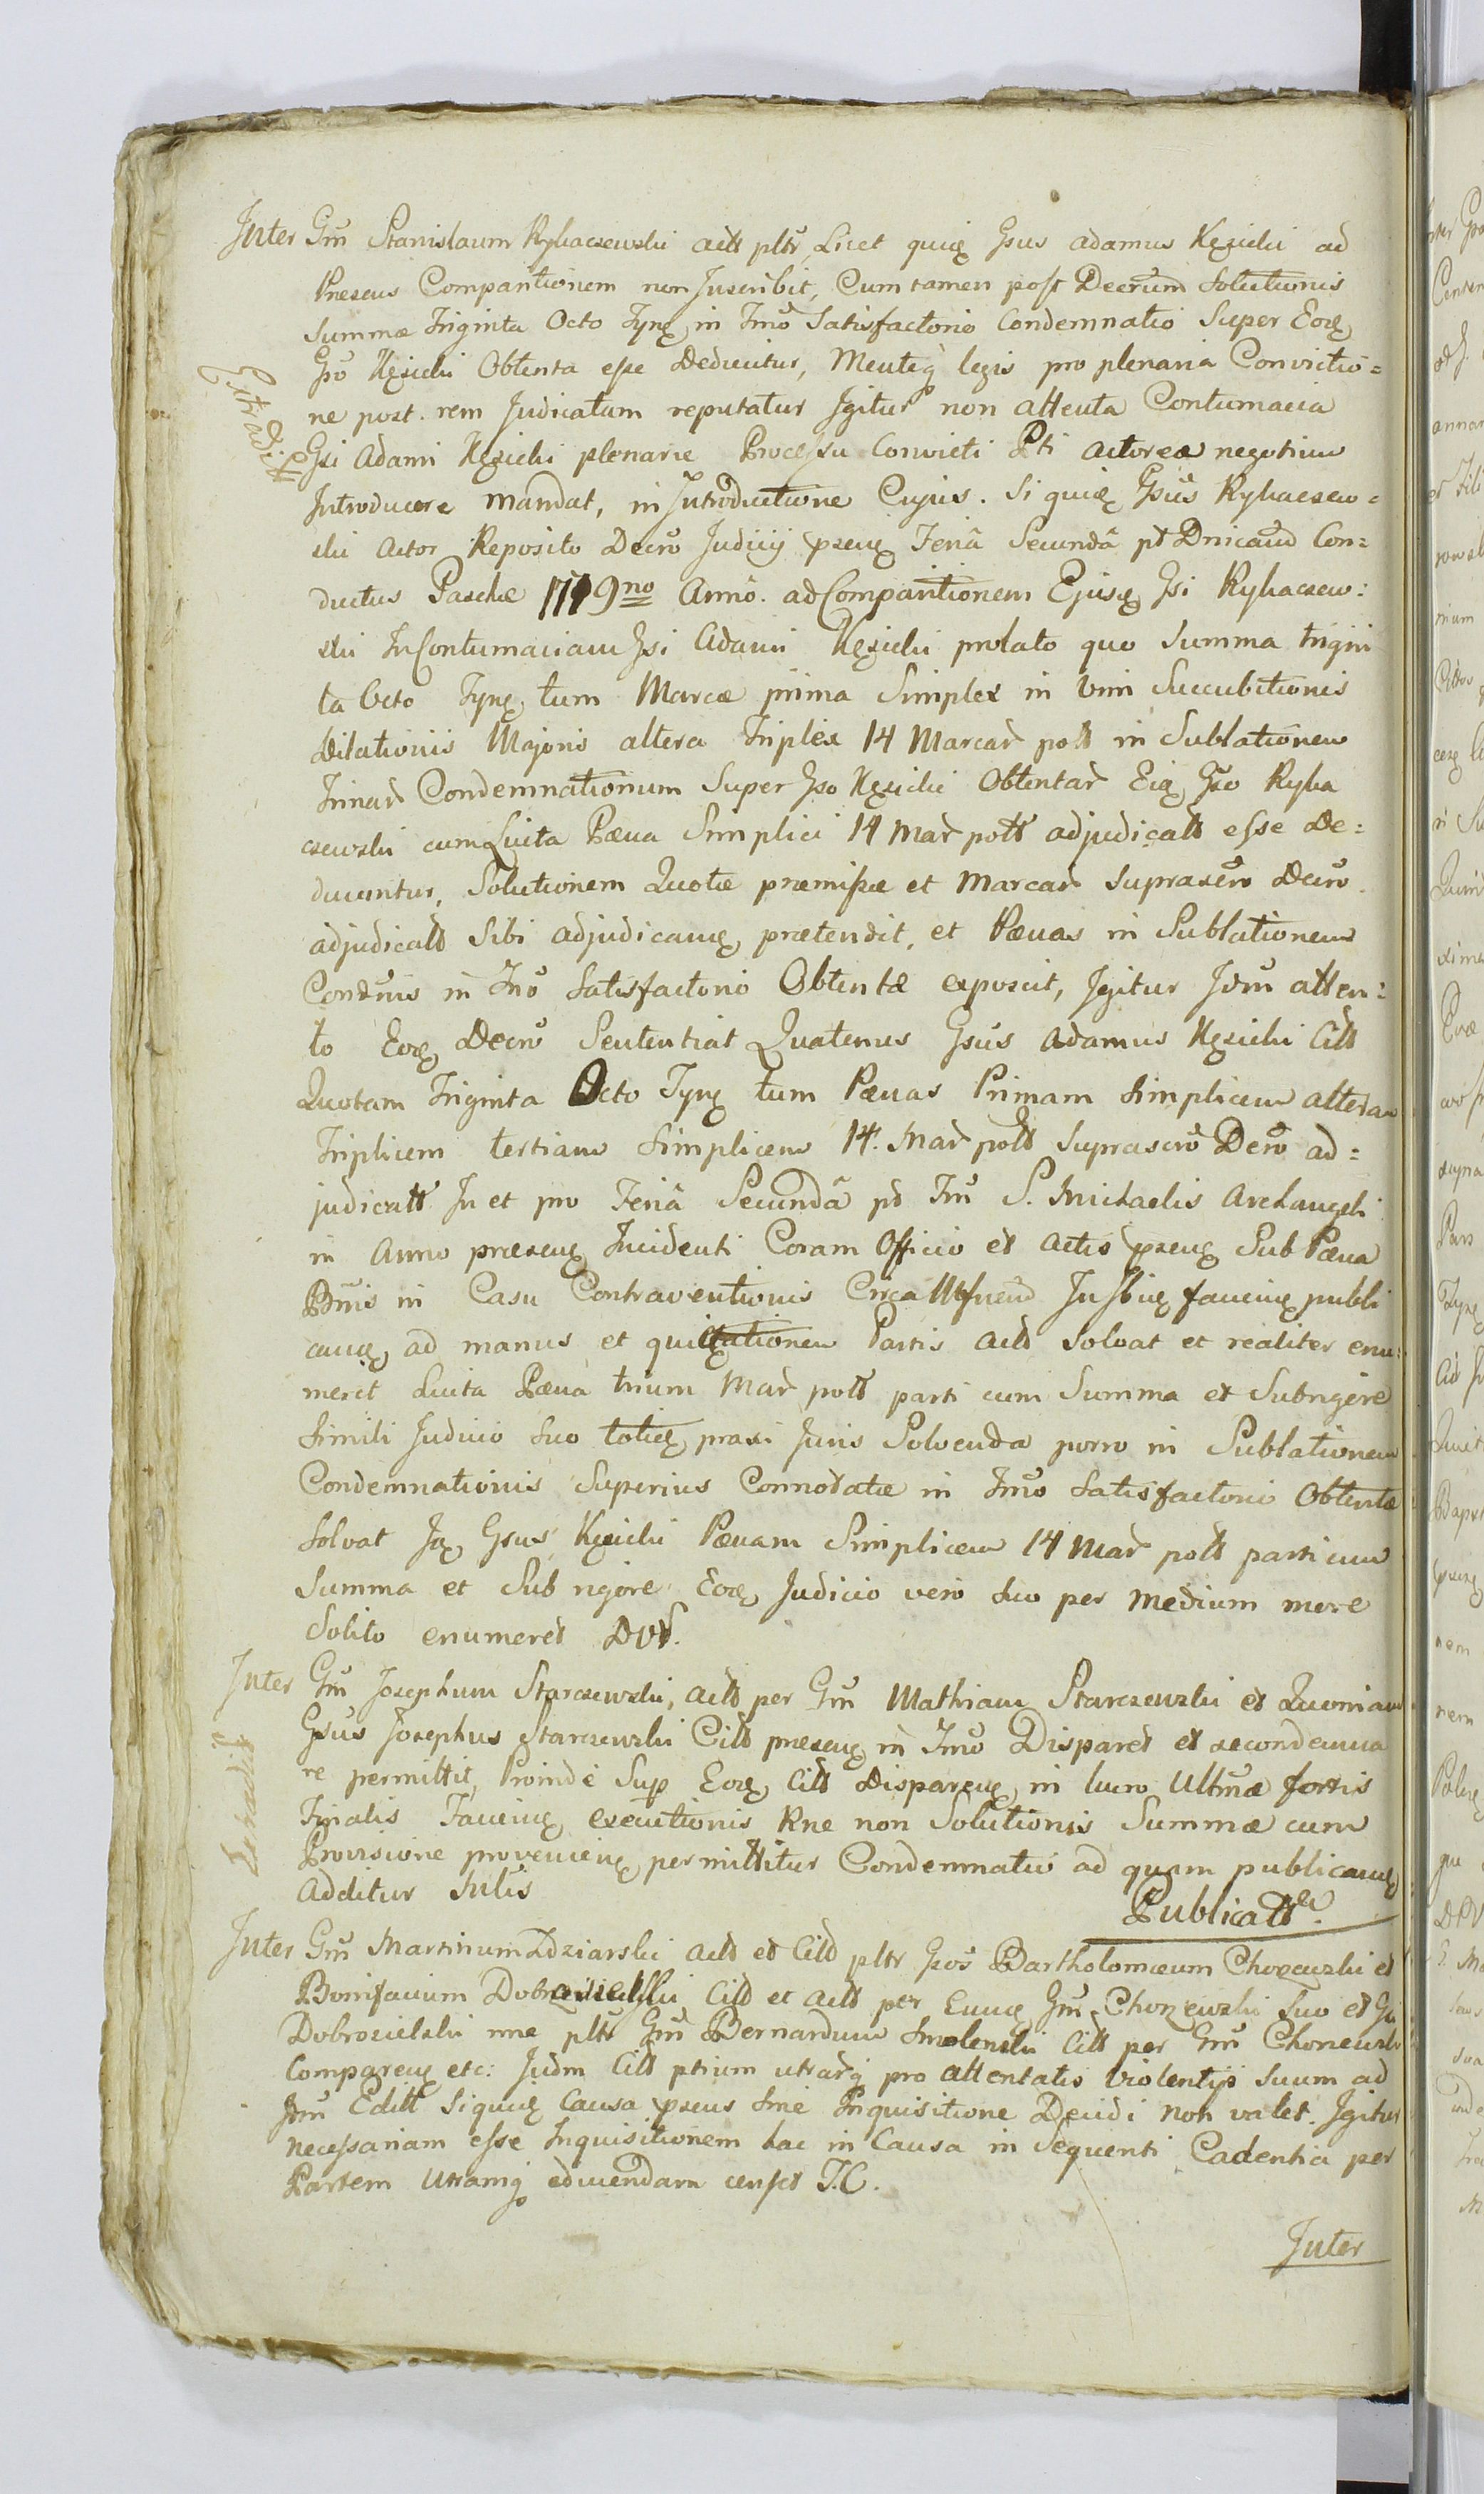 Inter Gm̃ Stanislaum Rybaczewski actt pltr, Licet quiq Gsus adamus Kęsicki ad
Presens Comparitionem non Juscribit, Cum tamen post Decrum Solutionis
Summæ Triginta Octo Tynę in Tmo Satisfactorio Condemnatio Super Eoq
Gso Kęsicki Obtenta esse Deducitur, Menteq legis pro plenaria Convictio=
ne post. rem Judicatam reputatur Igitur non attenta Contumacia
Extradit
Gsi Adami Kęsicki plenarie Processu Convicti Pti actoreæ negotium
Introducere mandat, in Introductione Cujus. Si quiq Gsus Rybaczew=
ski Actor Reposito Decro Judicij psenq Feriâ Secundâ pt Dnicam Con=
ductus Paschæ 1779no Anno. ad Comparitionem Ejusq Gsi Rybaczew:
ski In Contumaciam Gsi Adami Kęsicki prolato quo Summa trigin
ta Octo Tynę tum Marcæ prima Simplex in vim Succubitionis
Dilationis Majoris altera Triplex 14 Marcar polt in Sublationem
Trinar Condemnationum Super Gso Kęsicki Obtentar Eiq Gso Ryba
czewski cum Luita Pæna Simplici 14 Mar poltt adjudicatt esse De=
ducuntur, Solutionem Quotæ præmissæ et Marcar supraxcro Decro
adjudicatt Sibi adjudicanq prætendit, et Pænas in Sublationem
Condnis in Tno Satisfactorio Obtentæ exposcit, Igitur Jdm atten=
to Eoq Decro Sententiat Quatenus Gsus Adamus Kęsicki Citt
Quotam Triginta Octo Tynę tum Pænas Primam Simplicem alteram
Triplicem tertiam Simplicem 14. Mar poltt suprascro Decro ad=
judicatt In et pro Feriâ Secundâ pt Fm S. Michaelis Archangeli
in Anno præsenq Incidenti Coram Officio et Actis psenq Sub Pæna
Bnis in Casu Contraventionis Circa fauenq publi
canq ad manus et quittationem Partis actt Solvat et realiter enu=
meret Luita Pæna trium Mar poltt parti cum Summa et Subrigere
Simili Judicio suo totieq praxi Juris Solvenda porro in Sublationem
Condemnationis Superius Connotatæ in Tmo Satisfactorio Obtentæ
Solvat Jq Gsus Kęsicki Pænam Simplicem 14 Mar poltt parti cum
Summa et Sub rigore Eoq Judicio vero suo per medium more
Solito enumeret DVS.
Inter Gm̃ Josephum Starczewski, actt per Gm̃ Mathiam Starczewski et Quoniam
Extradit
Gsus Josephus Starczewski Citt præsenq in Tmo Disparet et se condemna
re permittit, Proinde Sup Eoq Citt Disparenq in lucro Ultmæ fortis
Finalis Fauenq executionis Rne non Solutionis Summæ cum
Provisione provenienq permittitur Condemnatio ad quam publicanq
additur
Publicatt
Inter Gm̃ Martinum Zdziarski actt et Citt pltr Gsos Bartholomæum Chorzewski et
Bonifacium Dobrosielski Citt et actt per Eunq Gm̃ Chorzewski suo et Gsi
Dobrosielski nne pltr Gm̃ Bernardum Smolenski Citt per Gm̃ Chorzewski
Comparenq etc: Judm Citt ptium utrarq pro attentatis Violentijs suum ad
Jdm Editt Siquiq Causa psens sine Inquisitione Decidi non valet. Igitur
necessariam esse Inquisitionem hac in Causa in Sequenti Cadentia per
Partem Utramq educendam censet J.C.
Inter